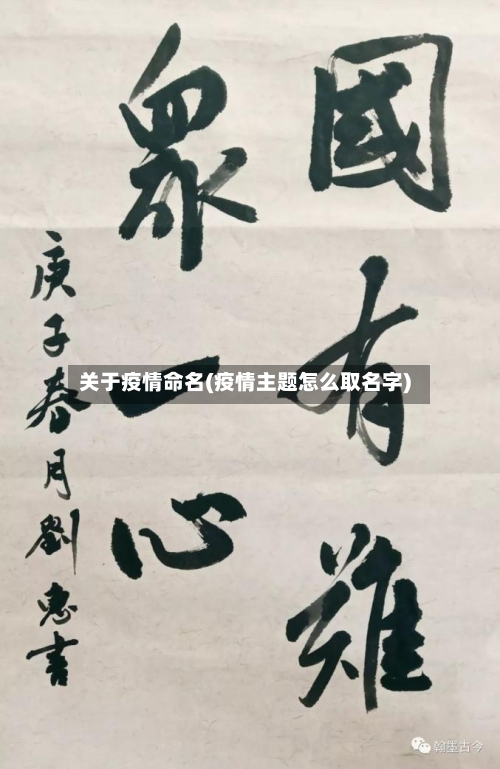 國有難
眾一心
庚子春月劉惠書
关于疫情命名(疫情主题怎么取名字)
翰墨古今